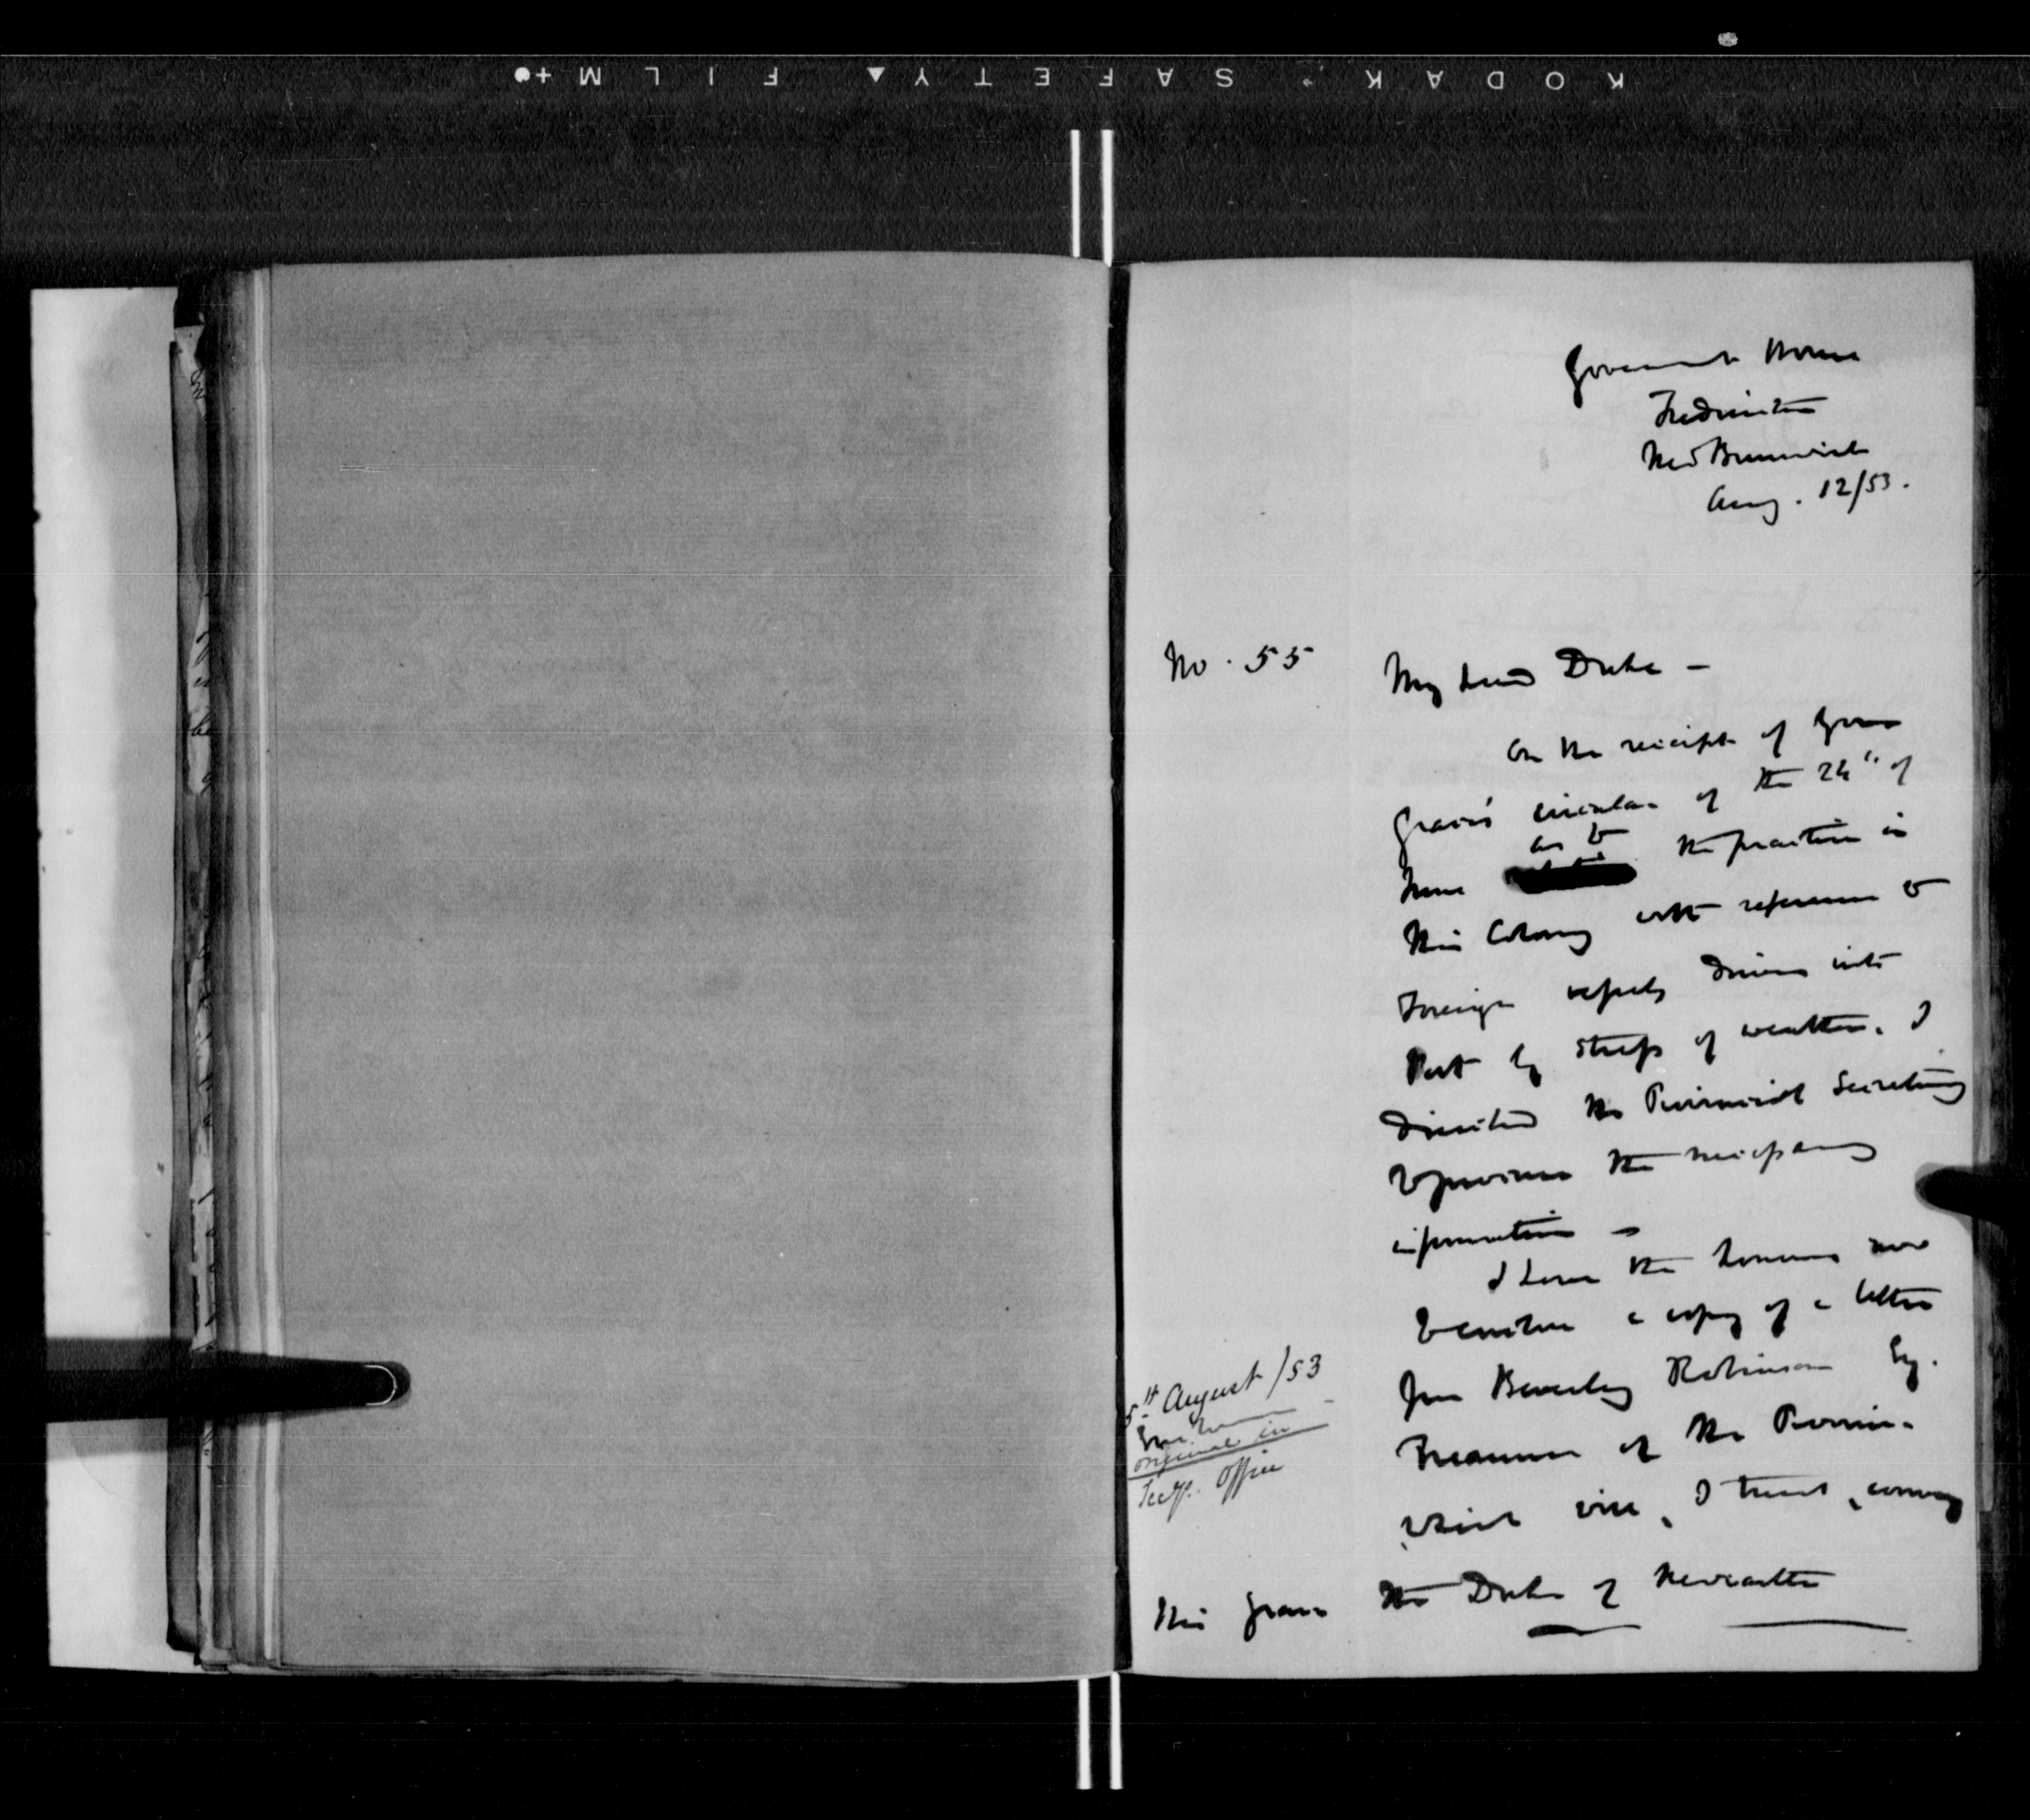 KODAK SAFETY FILM
Government House
Fredericton
New Brunswick
Aug. 12/53.
No. 55
My Lord Duke -
On the receipt of Your
Grace's circular of the 24" of
June as to the practice in
this Colony with reference to
Foreign vessels driven into
Port by stress of weather. I
directed the Provincial Secretary
to procure the necessary
information -
I have the honour now
to enclose a copy of a letter
from Beverley Robinson Esq.
Treasurer of the Province
which will, I trust, convey
5th August /53
original in
Secy. Office
His Grace The Duke of Newcastle